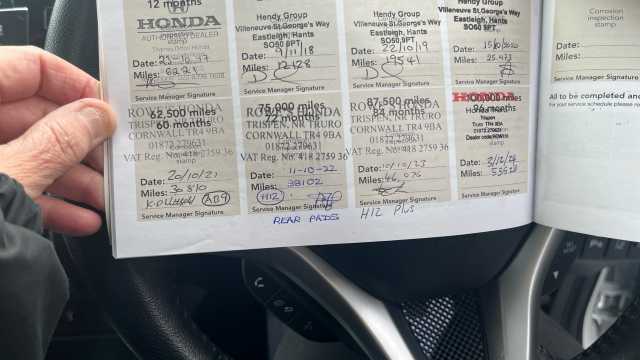 12 months
HONDA
AUTHORISED DEALER
stamp
Date: 23-10-17
Miles: 6221
Service Manager Signature
Hendy Group
Villeneuve St.George's Way
Eastleigh, Hants
SO50 9PT
Date: 9/11/18
Miles: 12428
Service Manager Signature
Hendy Group
Villeneuve St.George's Way
Eastleigh, Hants
SO50 9PT
Date: 22/10/19
Miles: 19541
Service Manager Signature
Hendy Group
Villeneuve St.George's Way
Eastleigh, Hants
SO50 9PT
Date: 15/10/2020
Miles: 25,473
Service Manager Signature
Corrosion
inspection
stamp
Date:
Miles:
All to be completed and
for your service schedule please
62,500 miles
60 months
HONDA
TRISPEN, NR TRURO
CORNWALL TR4 9BA
01872 279631
VAT Reg. No. 418 2759 36
Date: 20/10/21
Miles: 30810
Service Manager Signature
75,000 miles
72 months
HONDA
TRISPEN, NR TRURO
CORNWALL TR4 9BA
01872 279631
VAT Reg. No. 418 2759 36
Date: 11-10-22
Miles: 38102
H12
Service Manager Signature
REAR PADS
87,500 miles
84 months
HONDA
TRISPEN, NR TRURO
CORNWALL TR4 9BA
01872 279631
VAT Reg. No. 418 2759 36
Date: 10/10/23
Miles: 46,076
Service Manager Signature
H12 Plus
HONDA
100,000 miles
96 months
Honda Truro
Trispen
Truro TR4 9BA
01872 279631
Date: 3/12/24
Miles: 53528
Service Manager Signature